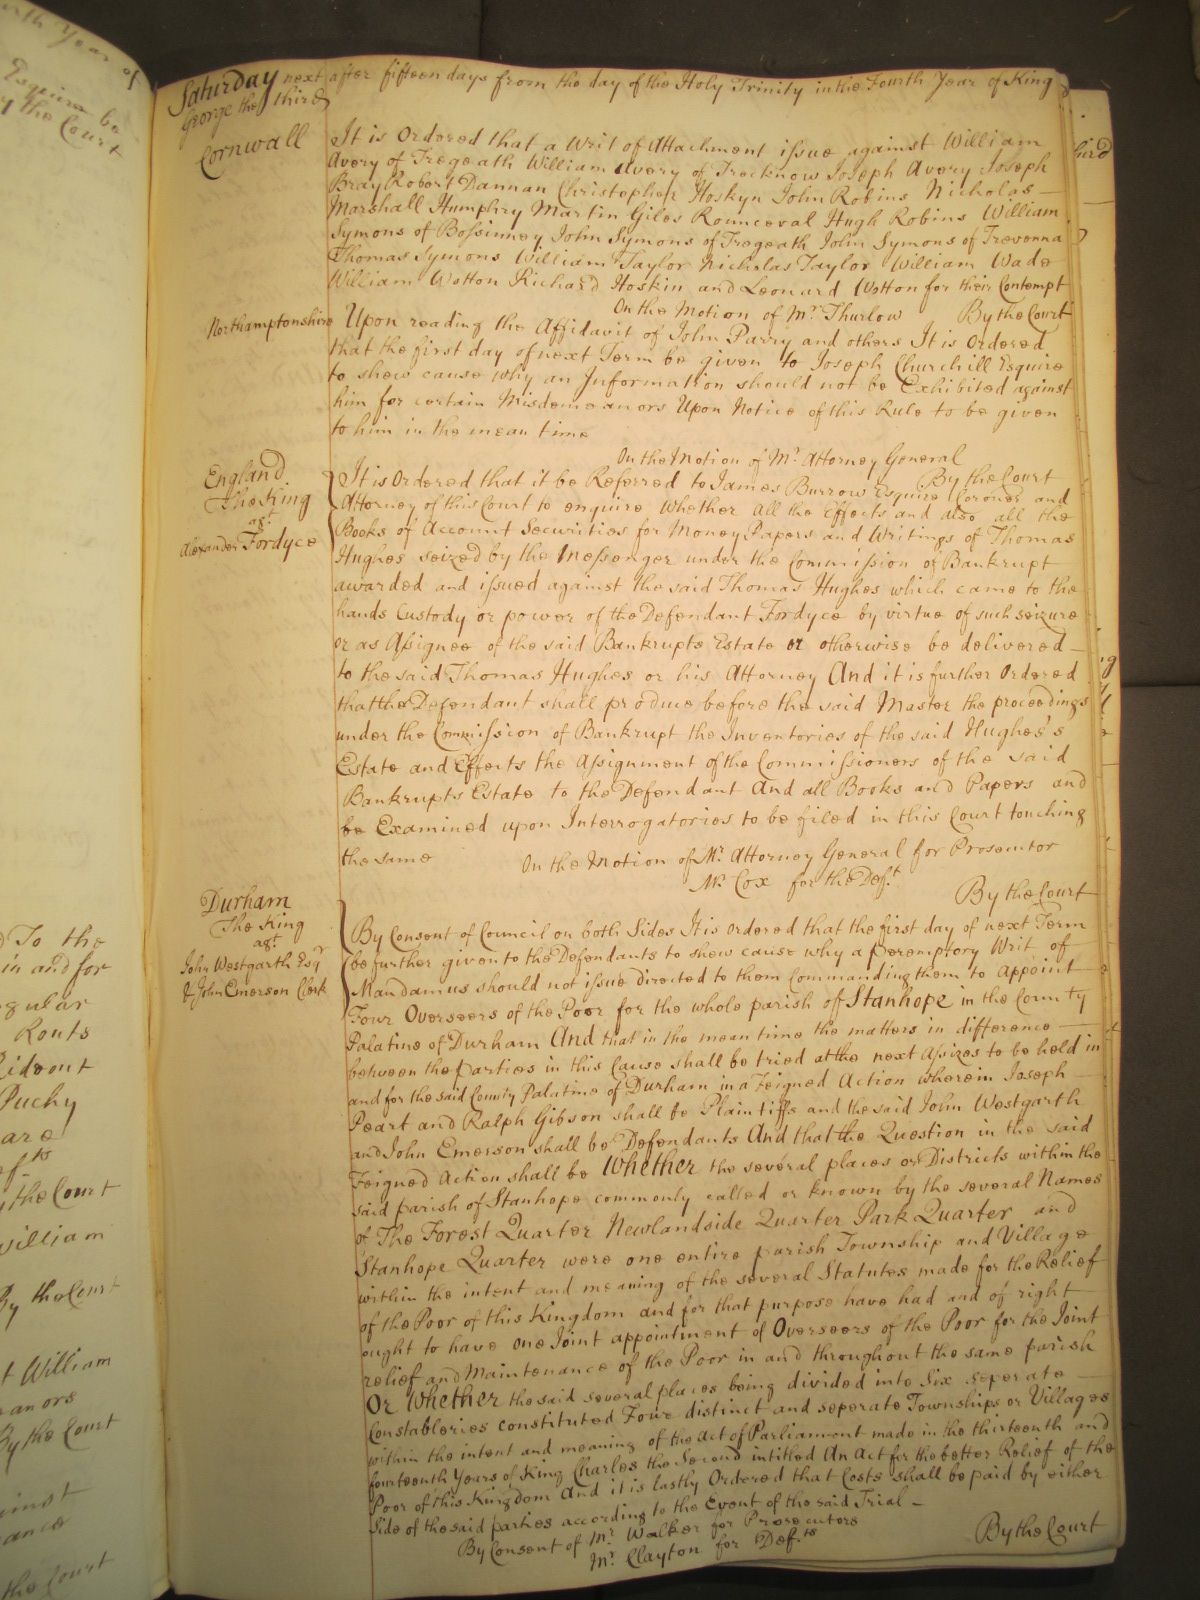 Saturday next after fifteen days from the day of the Holy Trinity in the Fourth Year of King
George the third
Cornwall
It is Ordered that a Writ of Attachment issue against William
Avery of Tregeath William Avery of Trecknow Joseph Avery Joseph
Bray Robert Dannan Christopher Hoskyn John Robins Nicholas
Marshall Humphry Martin Giles Rounceval Hugh Robins William
Symons of Bossinney John Symons of Tregeath John Symons of Trevenna
Thomas Symons William Taylor Nicholas Taylor William Wade
William Wotton Richard Hoskin and Leonard Wotton for their Contempt
On the Motion of Mr. Thurlow By the Court
Northamptonshire
Upon reading the Affidavit of John Parry and others It is Ordered
that the first day of next Term be given to Joseph Churchill Esquire
to shew cause why an Information should not be Exhibited against
him for certain Misdemeanors Upon Notice of this Rule to be given
to him in the mean time
On the Motion of Mr. Attorney General
By the Court
England
The King
agt.
Alexander Fordyce
It is Ordered that it be Referred to James Burrow Esquire Coroner and
Attorney of this Court to enquire Whether all the Effects and also all the
Books of Account Securities for Money Papers and Writings of Thomas
Hughes seized by the Messenger under the Commission of Bankrupt
awarded and issued against the said Thomas Hughes which came to the
hands Custody or power of the Defendant Fordyce by virtue of such seizure
or as Assignee of the said Bankrupts Estate or otherwise be delivered
to the said Thomas Hughes or his Attorney And it is further Ordered
that the Defendant shall produce before the said Master the proceedings
under the Commission of Bankrupt the Inventories of the said Hughes's
Estate and Effects the Assignment of the Commissioners of the said
Bankrupts Estate to the Defendant And all Books and Papers and
be Examined upon Interrogatories to be filed in this Court touching
the same
On the Motion of Mr. Attorney General for Prosecutor
Mr. Cox for the Deft.
By the Court
Durham
The King
agt.
John Westgarth Esqr
& John Emerson Clerk
By Consent of Council on both Sides It is Ordered that the first day of next Term
be further given to the Defendants to shew cause why a Peremptory Writ of
Mandamus should not issue directed to them Commanding them to appoint
Four Overseers of the Poor for the whole parish of Stanhope in the County
Palatine of Durham And that in the mean time the matters in difference
between the parties in this Cause shall be tried at the next Assizes to be held in
and for the said County Palatine of Durham in a Feigned Action wherein Joseph
Peart and Ralph Gibson shall be Plaintiffs and the said John Westgarth
and John Emerson shall be Defendants And that the Question in the said
Feigned Action shall be Whether the several places or Districts within the
said parish of Stanhope commonly called or known by the several Names
of The Forest Quarter Newlandside Quarter Park Quarter and
Stanhope Quarter were one entire parish Township and Village
within the intent and meaning of the several Statutes made for the Relief
of the Poor of this Kingdom and for that purpose have had and of right
ought to have one Joint appointment of Overseers of the Poor for the Joint
relief and Maintenance of the Poor in and throughout the same parish
Or Whether the said several places being divided into Six seperate
Constableries constituted Four distinct and seperate Townships or Villages
within the intent and meaning of the Act of Parliament made in the thirteenth and
fourteenth Years of King Charles the Second intitled An Act for the better Relief of the
Poor of this Kingdom And it is lastly Ordered that Costs shall be paid by either
Side of the said parties according to the Event of the said Trial
By Consent of Mr. Walker for Prosecutors
Mr. Clayton for Defts.
By the Court